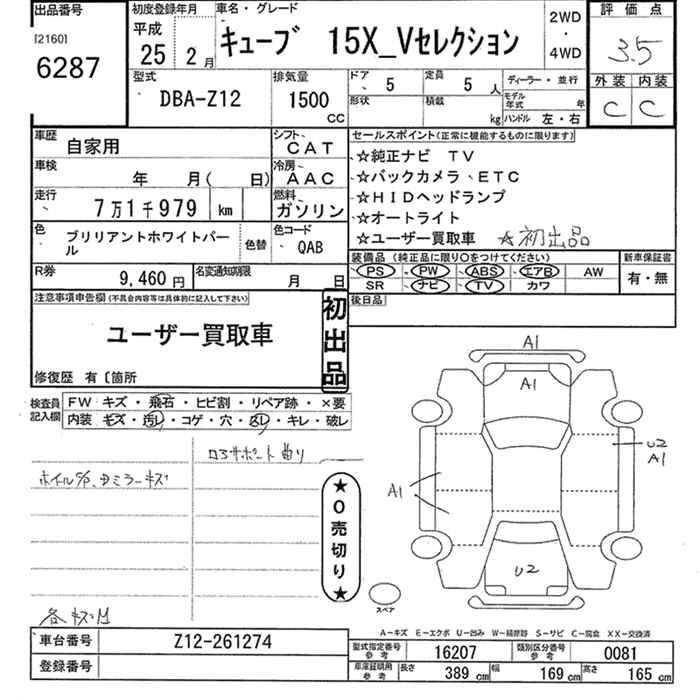 出品番号
[2160]
6287
初度登録年月
平成
25 2月
車名・グレード
キューブ 15X_Vセレクション
2WD
・
4WD
評価点
3.5
外装 内装
C C
型式
DBA-Z12
排気量
1500
CC
ドア 5
定員 5 人
形状
積載 kg
ディーラー・並行
モデル年式 年
ハンドル 左・右
車歴 自家用
シフト CAT
車検 年 月( 日)
冷房 AAC
走行 7万1千979 km
燃料 ガソリン
色 ブリリアントホワイトパール
色替
色コード QAB
R券 9,460円
名変通知期限 月 日
セールスポイント(正常に機能するものに限ります)
☆純正ナビ TV
☆バックカメラ、ETC
☆HIDヘッドランプ
☆オートライト
☆ユーザー買取車 ☆初出品
装備品 (純正品に限り○をつけてください)
PS PW ABS エアB AW
SR ナビ TV カワ
新車保証書
有・無
後日品
注意事項申告欄(不具合内容等は具体的に記入して下さい)
ユーザー買取車
初出品
修復歴 有〔箇所
検査員記入欄
FW キズ・飛石・ヒビ割・リペア跡・×要
内装 キズ・汚レ・コゲ・穴・スレ・キレ・破レ
コアサポート曲り
ホイルキズ、ミラーキズ
★0売切り★
各キズ凹
A1
A1
A1
U2
A1
U2
スペア
A-キズ E-エクボ U-凹み W-補修跡 S-サビ C-腐食 XX-交換済
車台番号 Z12-261274
登録番号
型式指定番号参考 16207
類別区分番号参考 0081
車庫証明用参考 長さ 389 cm 幅 169 cm 高さ 165 cm